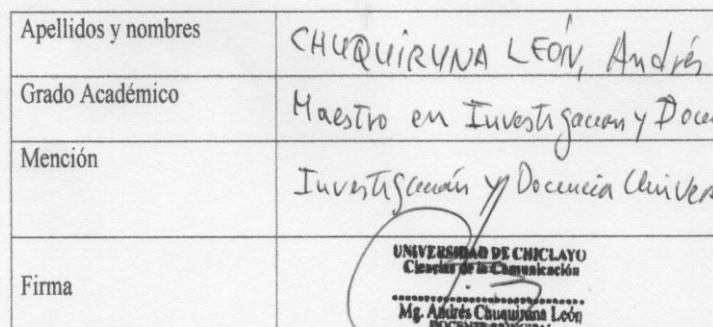 Apellidos y nombres
CHUQUIRUNA LEÓN, Andrés
Grado Académico
Maestro en Investigación y Docen
Mención
Investigación y Docencia Univers
Firma
UNIVERSIDAD DE CHICLAYO
Ciencias de la Comunicación
Mg. Andrés Chuquiruna León
DOCENTE PRINCIPAL